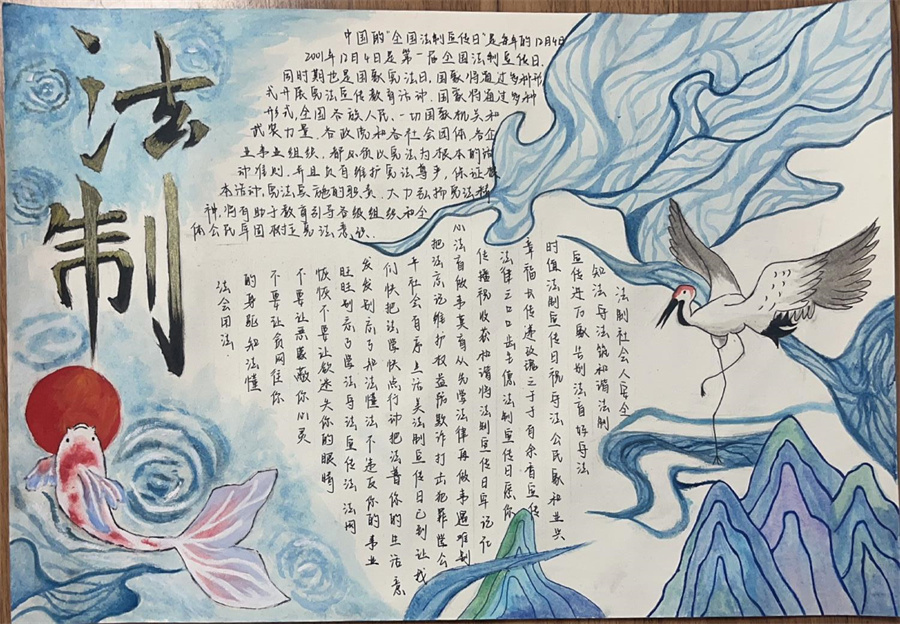 法制
中国的"全国法制宣传日"是每年的12月4日
2001年12月4日是第一届全国法制宣传日.
同时期也是国家宪法日,国家将通过多种形
式开展宪法宣传教育活动.国家将通过多种
形式,全国各族人民、一切国家机关和
武装力量、各政党和各社会团体、各企
业事业组织、都必须以宪法为根本的活
动准则,并且负有维护宪法尊严,保证
本活动,宪法实施的职责.大力弘扬宪法精
神,将有助于教育引导各级组织和全
体公民牢固树立宪法意识.
法制社会人民
知法守法筑和谐法制
宣传进万家告别法盲好守法
时值法制宣传日祝守法公民家和业兴
幸福长传递 有余看宣传
法律 出去 法制宣传日愿你
传播福收获和谐将法制宣传日牢记
心法盲做事莫 从先学法律再做事遇难
把法 记维护权益防欺诈打击犯罪学会
社会有序生活美法制宣传日已到让我
们快把法学快点行动把法普你的生活意
发发别忘了知法懂法不违反你的事业
旺旺别忘了学法守法宣传法网
恢恢不要让欲迷失你的眼睛
不要让恶蒙蔽你心灵
不要让贪网住你
的身躯知法懂
法会用法